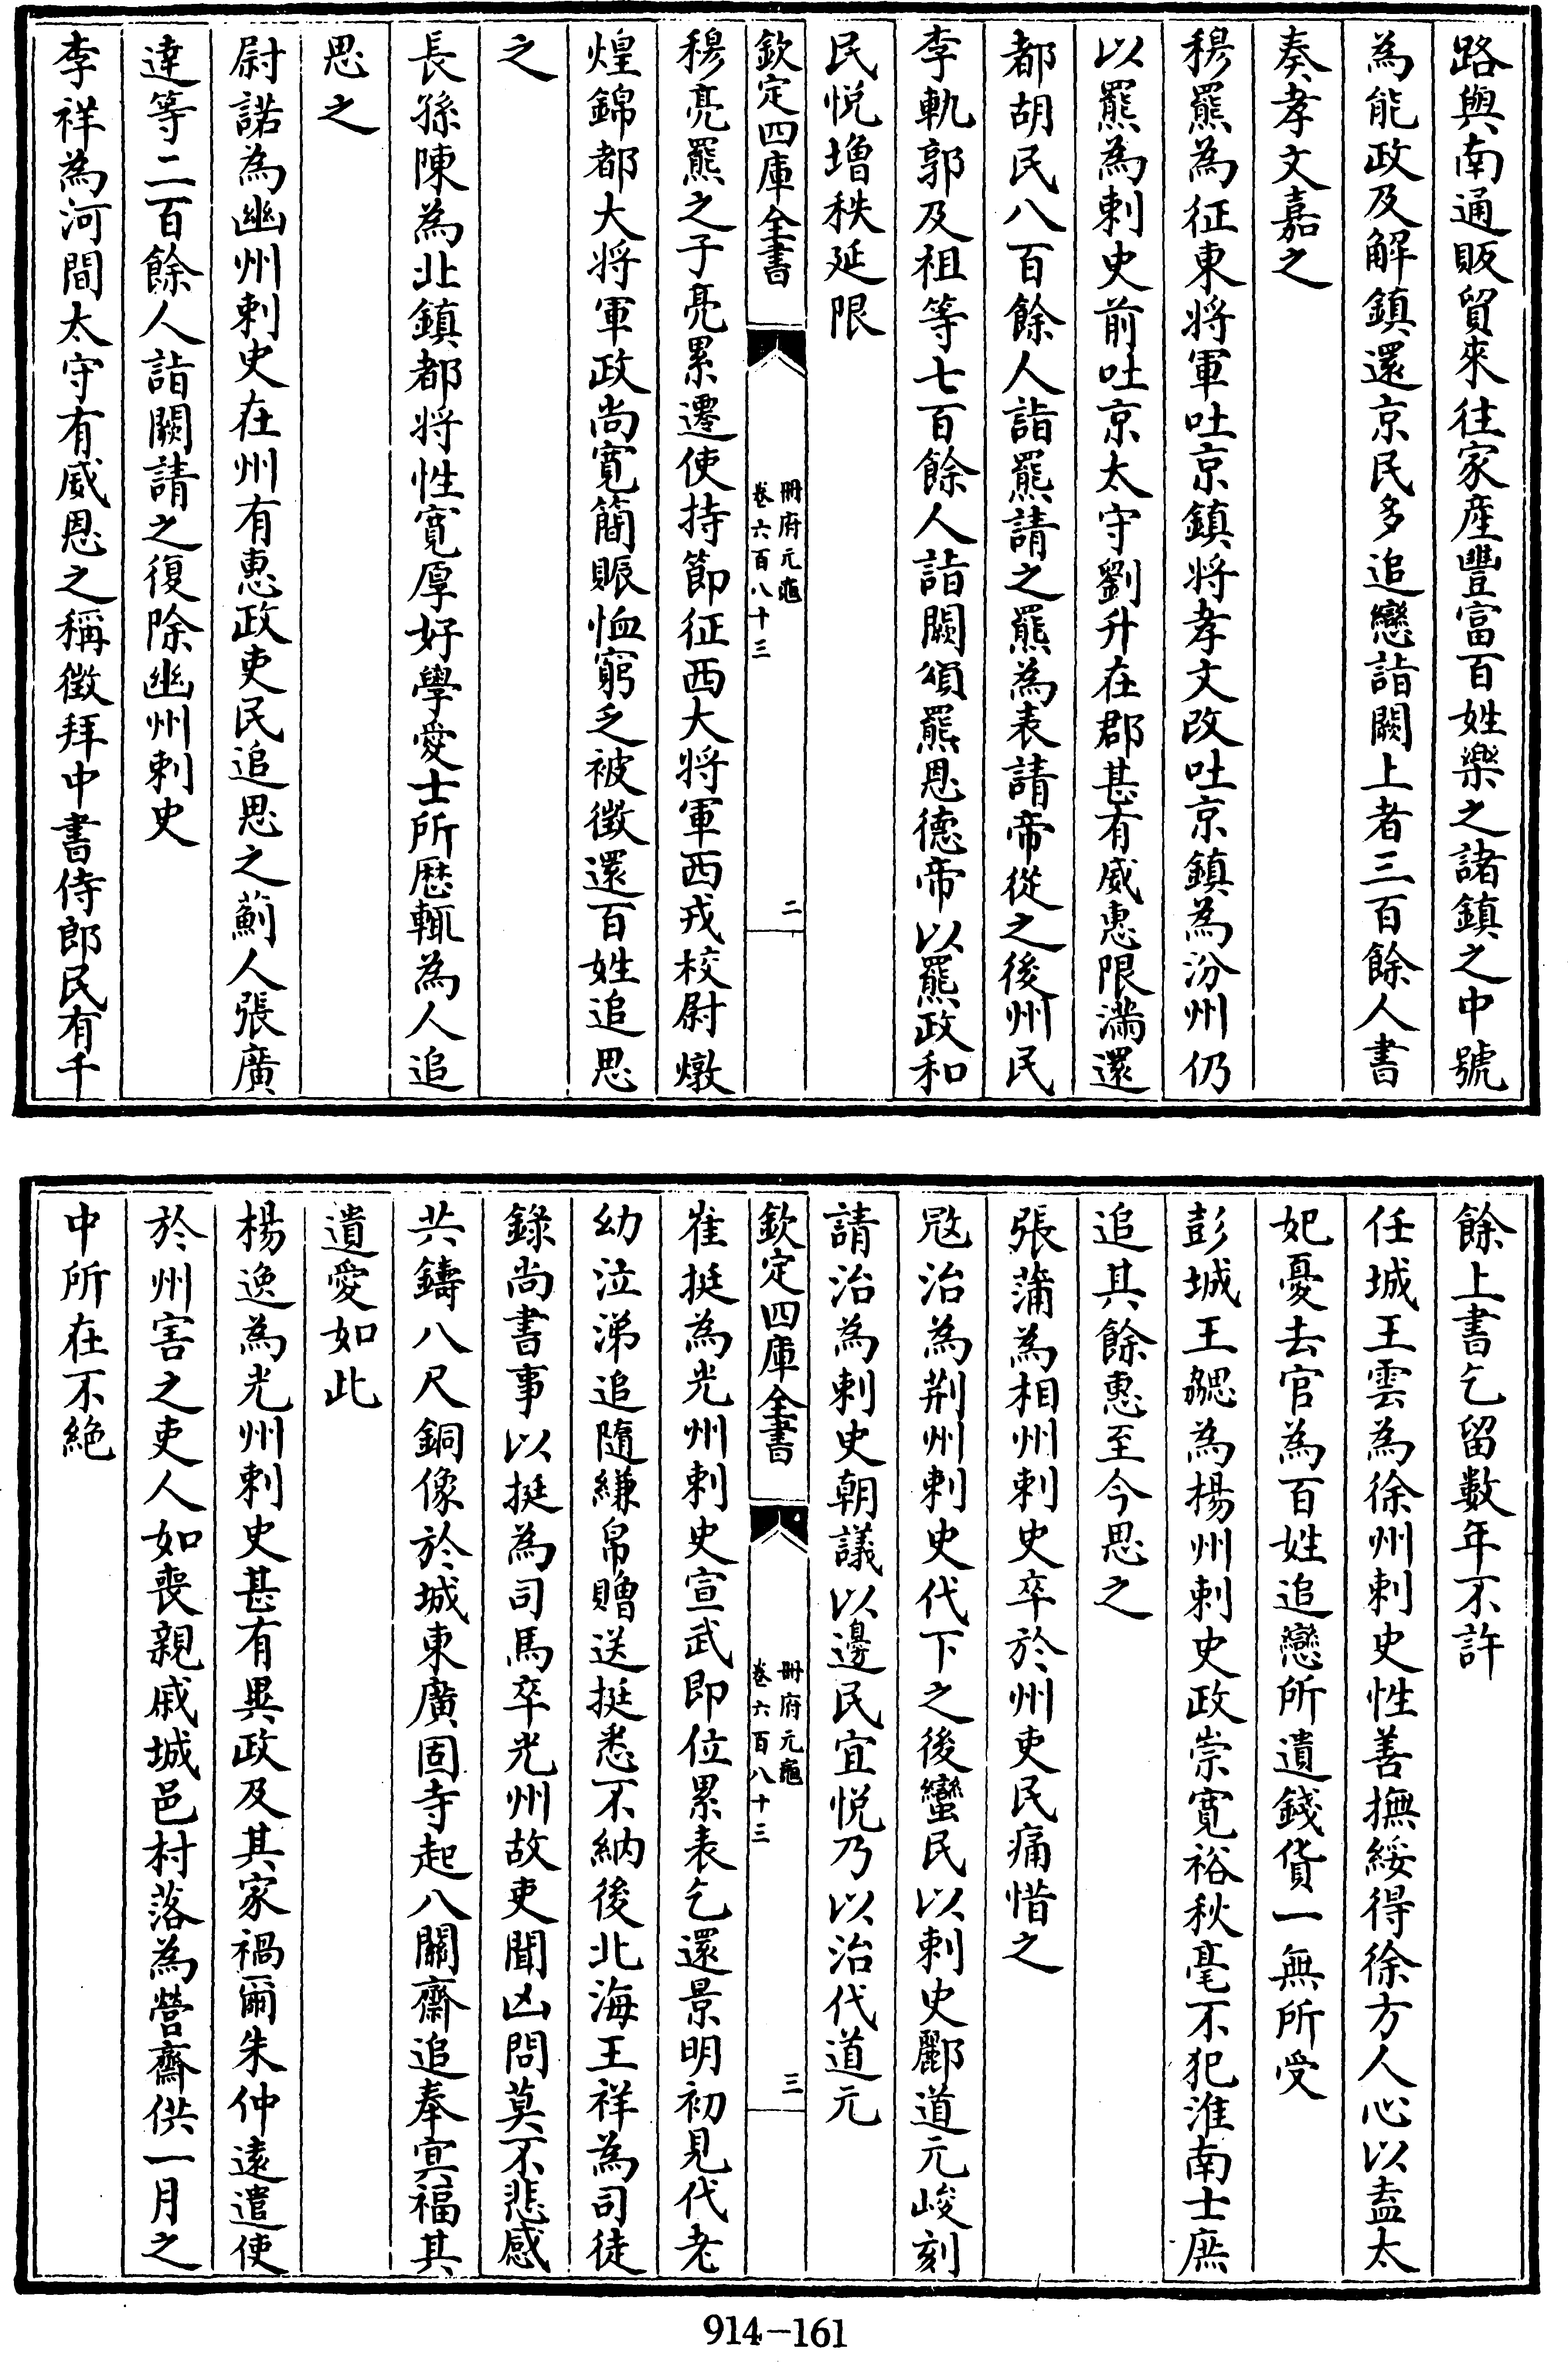 路與南通販貿來往家産豐富百姓樂之諸鎮之中號
為能政及解鎮還京民多追戀詣闕上者三百餘人書
奏孝文嘉之
穆羆為征東將軍吐京鎮將孝文改吐京鎮為汾州仍
以羆為刺史前吐京太守劉升在郡甚有威惠限滿還
都胡民八百餘人詣羆請之羆為表請帝從之後州民
李軌郭及祖等七百餘人詣闕頌羆恩德帝以羆政和
民悅增秩延限
欽定四庫全書
冊府元龜
卷六百八十三
二
穆亮羆之子亮累遷使持節征西大將軍西戎校尉燉
煌錦都大將軍政尚寛簡賑恤窮乏被徵還百姓追思
之
長孫陳為北鎮都將性寛厚好學愛士所歷輒為人追
思之
尉諾為幽州刺史在州有惠政吏民追思之薊人張廣
達等二百餘人詣闕請之復除幽州刺史
李祥為河間太守有威恩之稱徵拜中書侍郎民有千
餘上書乞留數年不許
任城王雲為徐州刺史性善撫綏得徐方人心以盍太
妃憂去官為百姓追戀所遺錢貨一無所受
彭城王勰為楊州刺史政崇寛裕秋毫不犯淮南士庶
追其餘惠至今思之
張蒲為相州刺史卒於州吏民痛惜之
冦治為荆州刺史代下之後蠻民以刺史酈道元峻刻
請治為刺史朝議以邊民宜悅乃以治代道元
欽定四庫全書
冊府元龜
卷六百八十三
三
崔挺為光州刺史宣武即位累表乞還景明初見代老
幼泣涕追隨縑帛贈送挺悉不納後北海王祥為司徒
錄尚書事以挺為司馬卒光州故吏聞凶問莫不悲感
共鑄八尺銅像於城東廣固寺起八關齋追奉冥福其
遺愛如此
楊逸為光州刺史甚有異政及其家禍爾朱仲遠遣使
於州害之吏人如喪親戚城邑村落為營齋供一月之
中所在不絶
914-161